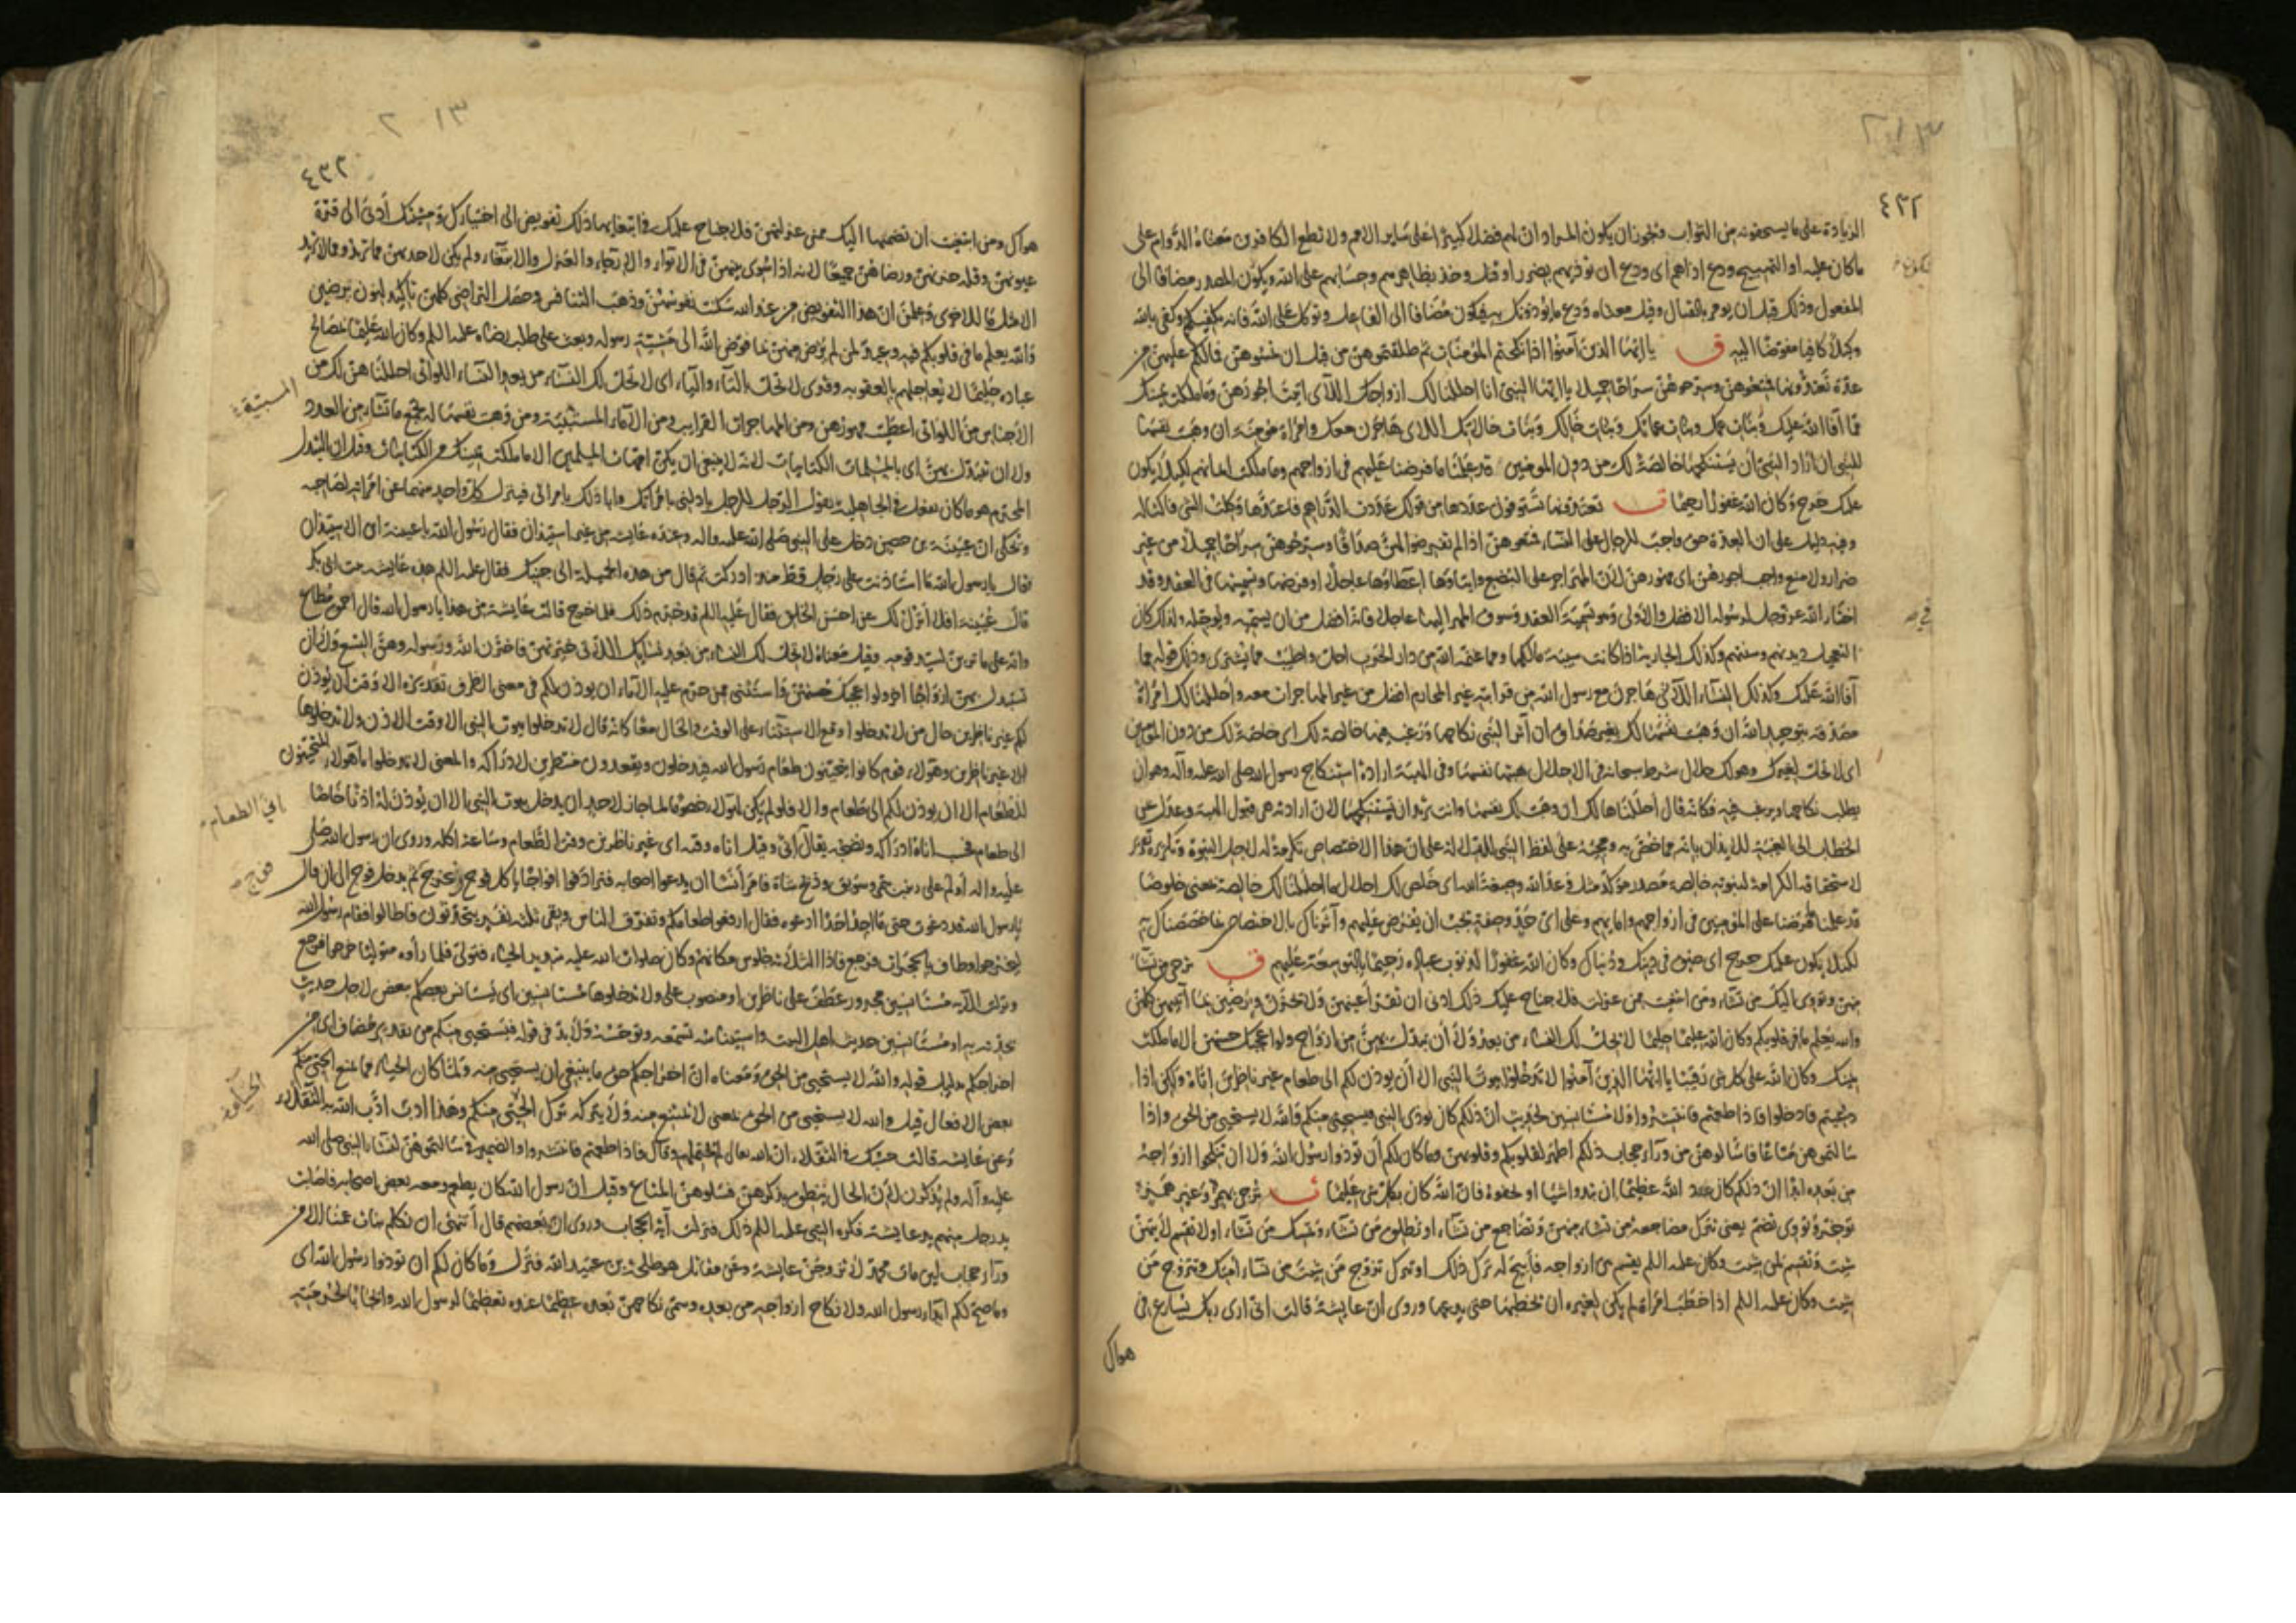 ٤٣٢
الزيادة على ما يستحقونه من الثواب ويجوز ان يكون المراد ان لهم فضلا كبيرا على ساير الامم ولا تطع الكافرين معناه الدوام على
ما كان عليه او التهييج ودع اذاهم اى ودع ان توذيهم بضرر او قتل وخذ بظاهرهم وحسابهم على الله ويكون المصدر مضافا الى
المفعول وذلك قبل ان يومر بالقتال وقيل معناه ودع ما يؤذونك به فيكون مضافا الى الفاعل وتوكل على الله فانه يكفيكهم وكفى بالله
وكيلا كافيا مفوضا اليه ق يا ايها الذين آمنوا اذا نكحتم المؤمنات ثم طلقتموهن من قبل ان تمسوهن فما لكم عليهن من
عدة تعتدونها فمتعوهن وسرحوهن سراحا جميلا يا ايها النبى انا احللنا لك ازواجك اللاى اتيت اجورهن وما ملكت يمينك
مما آفا الله عليك وبنات عمك وبنات عماتك وبنات خالك وبنات خالاتك اللاى هاجرن معك وامراة مؤمنة ان وهبت نفسها
للنبى ان اراد النبى ان يستنكحها خالصة لك من دون المومنين قد علمنا ما فرضنا عليهم فى ازواجهم وما ملكت ايمانهم لكيلا يكون
عليك حرج وكان الله غفورا رحيما ق تعتدونها تستوفون عددها من قولك عددت الدراهم فاعتدها وكلت الشى فاكتاله
وفيه دليل على ان العدة حق واجب للرجال على النساء فمتعوهن اذا لم تفرضوا لهن صداقا وسرحوهن سراحا جميلا من غير
ضرار ولا منع واجب اجورهن اى مهورهن لان المهر اجر على البضع وايتاوها اعطاوها عاجلا او فرضها وتسميتها فى العقد وقد
اختار الله عز وجل لرسوله الافضل والاولى وهو تسمية العقد وسوق المهر اليها عاجلا فانه افضل من ان يسميه ويوجله ولذلك كان
التعجيل ديدنهم وسنتهم وكذلك الجارية اذا كانت سبية مالكها ومما غنمه الله من دار الحرب احل واطيب مما يشترى وذلك قوله مما
آفا الله عليك وكذلك النساء اللاتى هاجرن مع رسول الله من قرابته غير المحارم افضل من غير المهاجرات معه واحللنا لك امراة
مصدقة بتوحيد الله ان وهبت نفسها لك بغير صداق ان آثر النبى نكاحها ورغب فيها خالصة لك اى خاصة لك من دون المؤمنين
اى لا تحل لغيرك وهو لك حلال شرط سبحانه فى الاحلال هبتها نفسها وفى الهبة ارادة استنكاح رسول الله صلى الله عليه وآله وهو ان
يطلب نكاحها ويرغب فيه فكانه قال احللناها لك ان وهبت لك نفسها وانت تريد ان تستنكحها لان ارادته هى قبول الهبة وعدل عن
الخطاب الى الغيبة للايذان بانه مما خص به ومجيئه على لفظ النبى للدلالة على ان هذا الاختصاص تكرمة له لاجل النبوة وتكريره تقرير
لاستحقاقه الكرامة لنبوته خالصة مصدر مؤكد مثل وعد الله وصبغة الله اى خلص لك احلال ما احللنا لك خالصة بمعنى خلوصا
قد علمنا ما فرضنا على المؤمنين فى ازواجهم وامايهم وعلى اى حد وصفة يجب ان يفرض عليهم وآثرناك بالاختصاص بما خصصناك به
لكيلا يكون عليك حرج اى ضيق فى دينك ودنياك وكان الله غفورا لذنوب عباده رحيما بالتوسعة عليهم ق ترجى من تشاء
منهن وتووى اليك من تشاء ومن ابتغيت ممن عزلت فلا جناح عليك ذلك ادنى ان تقر اعينهن ولا يحزن ويرضين بما آتيتهن كلهن
والله يعلم ما فى قلوبكم وكان الله عليما حليما لا تحل لك النساء من بعد ولا ان تبدل بهن من ازواج ولو اعجبك حسنهن الا ما ملكت
يمينك وكان الله على كل شى رقيبا يا ايها الذين آمنوا لا تدخلوا بيوت النبى الا ان يوذن لكم الى طعام غير ناظرين اناه ولكن اذا
دعيتم فادخلوا فاذا طعمتم فانتشروا ولا مستانسين لحديث ان ذلكم كان يوذى النبى فيستحيى منكم والله لا يستحيى من الحق واذا
سالتموهن متاعا فاسالوهن من ورآء حجاب ذلكم اطهر لقلوبكم وقلوبهن وما كان لكم ان توذوا رسول الله ولا ان تنكحوا ازواجه
من بعده ابدا ان ذلكم كان عند الله عظيما ان تبدوا شيا او تخفوه فان الله كان بكل شى عليما ق ترجى بهمز وغير همز
توخر وتووى تضم يعنى تترك مضاجعة من تشاء منهن وتضاجع من تشاء او تطلق من تشاء وتمسك من تشاء او لا تقسم لايتهن
شيت وتقسم لمن شيت وكان عليه السلم يقسم بين ازواجه فابيح له ترك ذلك او تترك تزوج من شيت من نساء امتك وتتزوج من
شيت وكان عليه السلم اذا خطب امراة لم يكن لغيره ان يخطبها حتى يدعها وروى ان عايشة قالت انى ارى ربك يسارع فى
هواك
٤٣٣
هواك ومن ابتغيت ان تضمها اليك ممن عزلتهن فلا جناح عليك فى ابتغايها ذلك تفويض الى اختيارك ومشيتك ادنى الى قرة
عيونهن وقلة حزنهن ورضاهن جميعا لانه اذا سوى بينهن فى الايواء والارجاء والعزل والابتغاء ولم يكن لاحديهن مما تريد ومما لا تريد
الا مثل ما للاخرى وعلمن ان هذا التفويض من عند الله سكنت نفوسهن وذهب التنافس وحصل التراضى كلهن تاكيد لنون يرضين
والله يعلم ما فى قلوبكم فيه وعيد لمن لم يرض منهن بما فوض الله الى مشيته رسوله وبعث على طلب رضاه عليه السلم وكان الله عليما بمصالح
عباده حليما لا يعاجلهم بالعقوبه وقرى لا تحل بالتاء والياء اى لا تحل لك النساء من بعد النساء اللواتى احللنا هن لك من
الاجناس من اللواتى اعطيت مهورهن ومن المهاجرات القرايب ومن الاماء المسبية ومن وهبت نفسها له يجمع ما تشاء من العدد
ولا ان تبدل بهن اى بالمسلمات الكتابيات لانه لا ينبغى ان يكن امهات المسلمين الا ما ملكت يمينك من الكتابيات وقيل ان التبدل
المحرم هو ما كان يفعل فى الجاهلية يقول الرجل للرجل بادلنى بامراتك وابادلك بامراتى فينزل كل واحد منهما عن امراته لصاحبه
ويحكى ان عيينة بن حصين دخل على النبى صلى الله عليه واله وعنده عايشه من غير استيذان فقال رسول الله يا عيينة اين الاستيذان
فقال يا رسول الله ما استاذنت على رجل قط منذ ادركت ثم قال من هذه الجميلة الى جنبك فقال عليه السلم هذه عايشه بنت ابى بكر
قال عيينة افلا انزل لك عن احسن الخلق فقال عليه السلم قد حرم ذلك فلما خرج قالت عايشة من هذا يا رسول الله قال احمق مطاع
وانه على ما ترين لسيد قومه وقيل معناه لا تحل لك النساء من بعد نسايك اللاتى خيرتهن فاخترن الله ورسوله وهن التسع ولا ان
تستبدل بهن ازواجا اخر ولو اعجبك حسنهن واستثنى ممن حرم عليه الآماء ان يوذن لكم فى معنى الظرف تقديره الا وقت ان يوذن
لكم غير ناظرين حال من لا تدخلوا وقع الاستثناء على الوقت والحال معا كانه قال لا تدخلوا بيوت النبى الا وقت الاذن ولا تدخلوها
الا غير ناظرين وهولاء قوم كانوا يتحينون طعام رسول الله فيدخلون ويقعدون منتظرين لادراكه والمعنى لا تدخلوا يا هولاء المتحينون
للطعام الا ان يوذن لكم الى طعام والا فلو لم يكن لهولاء خصوصا لما جاز لاحد ان يدخل بيوت النبى الا ان يوذن له اذنا خاصا
الى طعام فحسب اناه ادراكه ونضجه يقال انى وقيل اناه وقته اى غير ناظرين وقت الطعام وساعة اكله وروى ان رسول الله صلى
عليه واله اولم على زينب بتمر وسويق وذبح شاة فامر انسا ان يدعوا اصحابه فترادفوا افواجا ياكل فوج ويخرج ثم يدخل فوج الى ان قال
يا رسول الله قد دعوت حتى ما اجد احدا ادعوه فقال ارفعوا طعامكم وتفرق الناس وبقى ثلثه نفر يتحدثون فاطالوا فقام رسول الله
ليخرجوا وطاف بالحجرات فرجع فاذا الثلاثة جلوس مكانهم وكان صلوات الله عليه شديد الحياء فتولى فلما راوه متوليا خرجوا فرجع
ونزلت الآية مستانسين مجرور عطف على ناظرين او منصوب على ولا تدخلوها مستانسين اى يستانس بعضكم ببعض لاجل حديث
يحدثه به او مستانسين حديث اهل البيت واستيناسه تسمعه وتوحشه ولا بد فى قوله فيستحيى منكم من تقدير مضاف اى من
اخراجكم بدليل قوله والله لا يستحيى من الحق ومعناه ان اخراجكم حق ما ينبغى ان يستحيى منه ولما كان الحياء مما يمنع الحيى من
بعض الافعال قيل والله لا يستحيى من الحق بمعنى لا يمتنع منه ولا يتركه ترك الحيى منكم وهذا ادب ادب الله به الثقلاء
وعن عايشه قالت حسبك فى الثقلاء ان الله تعالى لم يحتملهم وقال فاذا طعمتم فانتشروا والضمير فى سالتموهن لنساء النبى صلى الله
عليه وآله ولم يذكرن لان الحال ينطق بذكرهن فسلوهن المتاع وقيل ان رسول الله كان يطعم ومعه بعض اصحابه فاصابت
يد رجل منهم يد عايشة فكره النبى عليه السلم ذلك فنزلت آية الحجاب وروى ان بعضهم قال اننهى ان نكلم بنات عمنا الا من
ورآء حجاب لين مات محمد لاتزوجن عايشة وعن مقاتل هو طلحة بن عبيد الله فنزل وما كان لكم ان توذوا رسول الله اى
وما صح لكم ايذاء رسول الله ولا نكاح ازواجه من بعده وسمى نكاحهن بعده عظيما عنده تعظيما لرسول الله وايجابا لحرمته
المسبية
الحياء